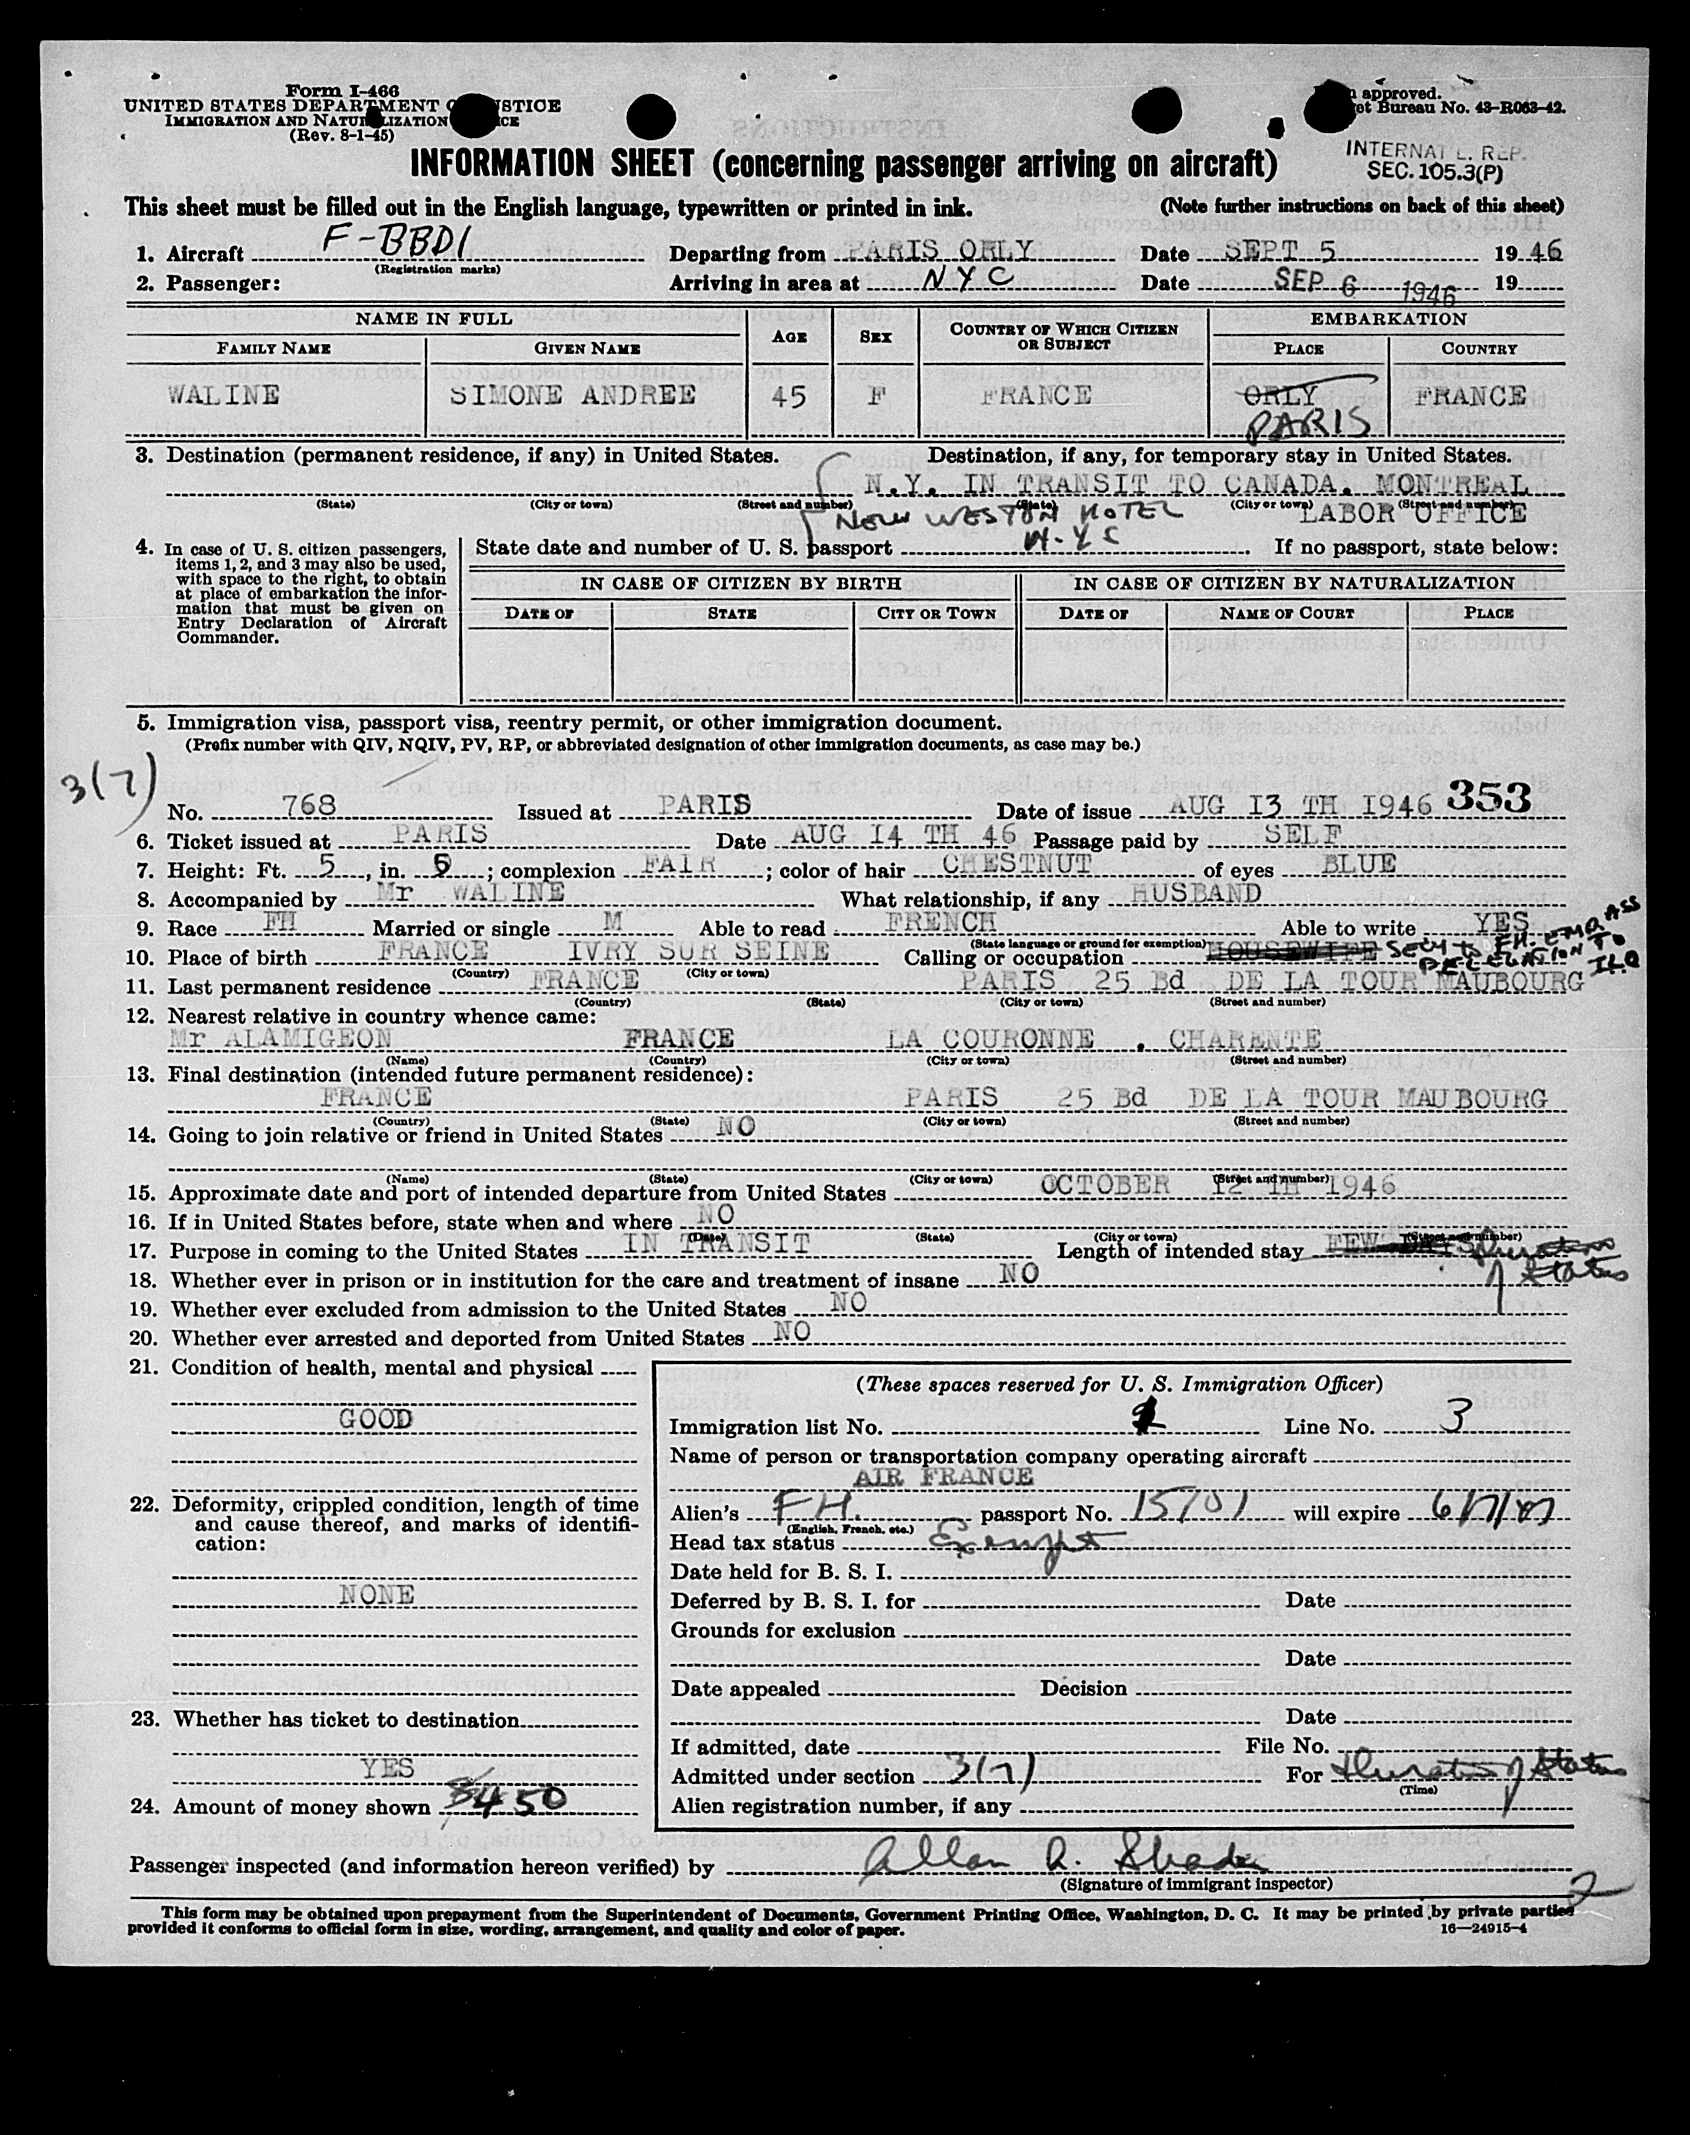 Form I-466
UNITED STATES DEPARTMENT OF JUSTICE
IMMIGRATION AND NATURALIZATION SERVICE
(Rev. 8-1-45)
approved.
Bureau No. 43-R063-42.
INTERNAT'L. REP.
SEC. 105.3(P)
INFORMATION SHEET (concerning passenger arriving on aircraft)
This sheet must be filled out in the English language, typewritten or printed in ink. (Note further instructions on back of this sheet)
1. Aircraft F-BBDI Departing from PARIS ORLY Date SEPT 5 1946
(Registration marks)
2. Passenger: Arriving in area at NYC Date SEP 6 1946 19
NAME IN FULL AGE SEX COUNTRY OF WHICH CITIZEN OR SUBJECT EMBARKATION
FAMILY NAME GIVEN NAME PLACE COUNTRY
WALINE SIMONE ANDREE 45 F FRANCE ORLY FRANCE
PARIS
3. Destination (permanent residence, if any) in United States. Destination, if any, for temporary stay in United States.
N.Y. IN TRANSIT TO CANADA. MONTREAL
(State) (City or town) (Street and number) (State) (City or town) (Street and number)
NEW WESTON HOTEL LABOR OFFICE
N.Y.C
4. In case of U. S. citizen passengers, items 1, 2, and 3 may also be used, with space to the right, to obtain at place of embarkation the information that must be given on Entry Declaration of Aircraft Commander.
State date and number of U. S. passport If no passport, state below:
IN CASE OF CITIZEN BY BIRTH IN CASE OF CITIZEN BY NATURALIZATION
DATE OF STATE CITY OR TOWN DATE OF NAME OF COURT PLACE
5. Immigration visa, passport visa, reentry permit, or other immigration document.
(Prefix number with QIV, NQIV, PV, RP, or abbreviated designation of other immigration documents, as case may be.)
3(7)
No. 768 Issued at PARIS Date of issue AUG 13 TH 1946 353
6. Ticket issued at PARIS Date AUG 14 TH 46 Passage paid by SELF
7. Height: Ft. 5, in. 5; complexion FAIR; color of hair CHESTNUT of eyes BLUE
8. Accompanied by Mr WALINE What relationship, if any HUSBAND
9. Race FH Married or single M Able to read FRENCH Able to write YES
(State language or ground for exemption)
10. Place of birth FRANCE IVRY SUR SEINE Calling or occupation HOUSEWIFE SECY TO FH. EMBASS
DELEGATION TO ILO
(Country) (City or town)
11. Last permanent residence FRANCE PARIS 25 Bd DE LA TOUR MAUBOURG
(Country) (State) (City or town) (Street and number)
12. Nearest relative in country whence came:
Mr ALAMIGEON FRANCE LA COURONNE . CHARENTE
(Name) (Country) (City or town) (Street and number)
13. Final destination (intended future permanent residence):
FRANCE PARIS 25 Bd DE LA TOUR MAUBOURG
(Country) (State) (City or town) (Street and number)
14. Going to join relative or friend in United States NO
(Name) (State) (City or town) (Street and number)
15. Approximate date and port of intended departure from United States OCTOBER 12 TH 1946
16. If in United States before, state when and where NO
(Date) (State) (City or town) (Street and number)
17. Purpose in coming to the United States IN TRANSIT Length of intended stay FEW DAYS Duration
of Status
18. Whether ever in prison or in institution for the care and treatment of insane NO
19. Whether ever excluded from admission to the United States NO
20. Whether ever arrested and deported from United States NO
21. Condition of health, mental and physical
GOOD
22. Deformity, crippled condition, length of time and cause thereof, and marks of identification:
NONE
23. Whether has ticket to destination
YES
24. Amount of money shown $450
(These spaces reserved for U. S. Immigration Officer)
Immigration list No. Line No. 3
Name of person or transportation company operating aircraft
AIR FRANCE
Alien's FH. passport No. 15101 will expire 6/7/47
(English, French, etc.)
Head tax status Exempt
Date held for B. S. I.
Deferred by B. S. I. for Date
Grounds for exclusion
Date
Date appealed Decision
Date
If admitted, date File No.
Admitted under section 3(7) For Duration of Status
(Time)
Alien registration number, if any
Passenger inspected (and information hereon verified) by Allan A. Shader
(Signature of immigrant inspector)
2
This form may be obtained upon prepayment from the Superintendent of Documents, Government Printing Office, Washington, D. C. It may be printed by private parties
provided it conforms to official form in size, wording, arrangement, and quality and color of paper. 16—24915-4